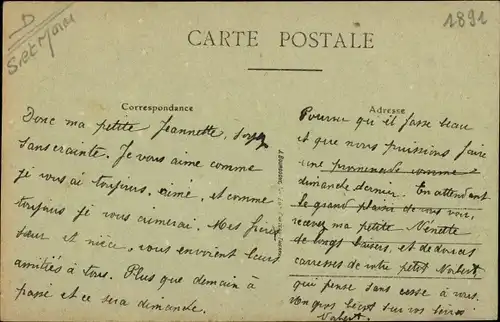 D
S et Marne
1891
CARTE POSTALE
Correspondance
Adresse
Donc ma petite Jeannette, soyez
sans crainte. Je vous aime comme
je vous ai toujours aimé, et comme
toujours je vous aimerai. Mes frères
sœur et nièce, vous envoient leurs
amitiés à tous. Plus que demain à
passé et ce sera dimanche.
Pourvu qu'il fasse beau
et que nous puissions faire
une promenade comme
dimanche dernier. En attendant
le grand plaisir de vous voir,
recevez ma petite Nénette
de longs baisers, et de douces
caresses de votre petit Nabert
qui pense sans cesse à vous.
Un gros bécot sur vos lèvres
Nabert.